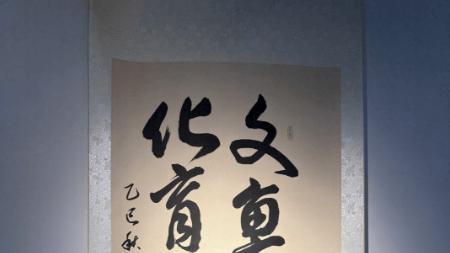 文
化育
乙巳秋